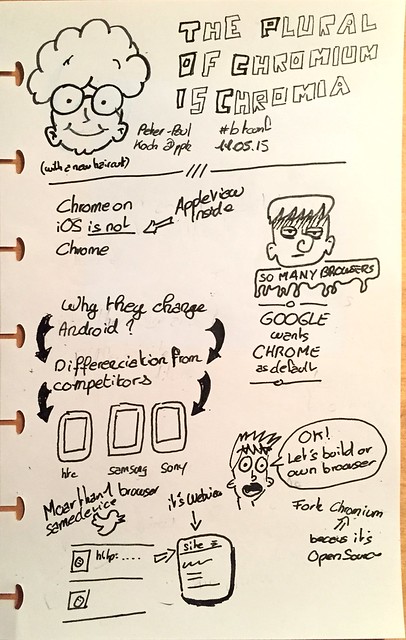 THE PLURAL
OF CHROMIUM
IS CHROMIA
Peter-Paul
Koch @ppk
#btconf
11.05.15
(with a new haircut)
Chrome on
iOS is not
Chrome
AppleView
Inside
SO MANY BROWSERS
GOOGLE
wants
CHROME
as default
Why they change
Android?
Differenciation from
competitors
htc
samsung
Sony
OK!
Let's build or
own browser
Moar than 1 browser
same device
it's Webview
http:....
site
Fork Chromium
becous it's
OpenSource